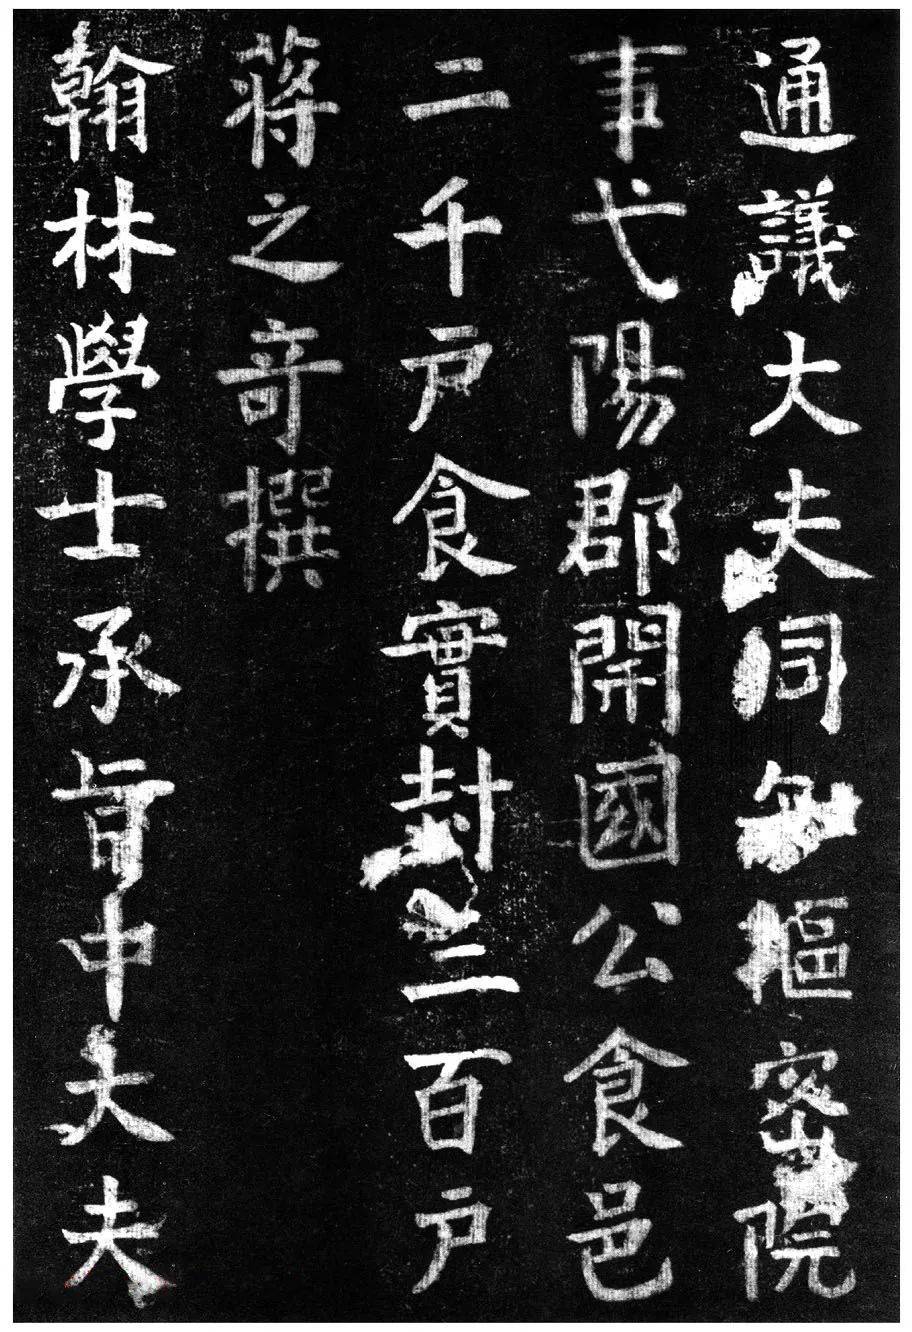 通議大夫同知樞密院
事弋陽郡開國公食邑
二千戶食實封三百戶
蔣之奇撰
翰林學士承旨中大夫